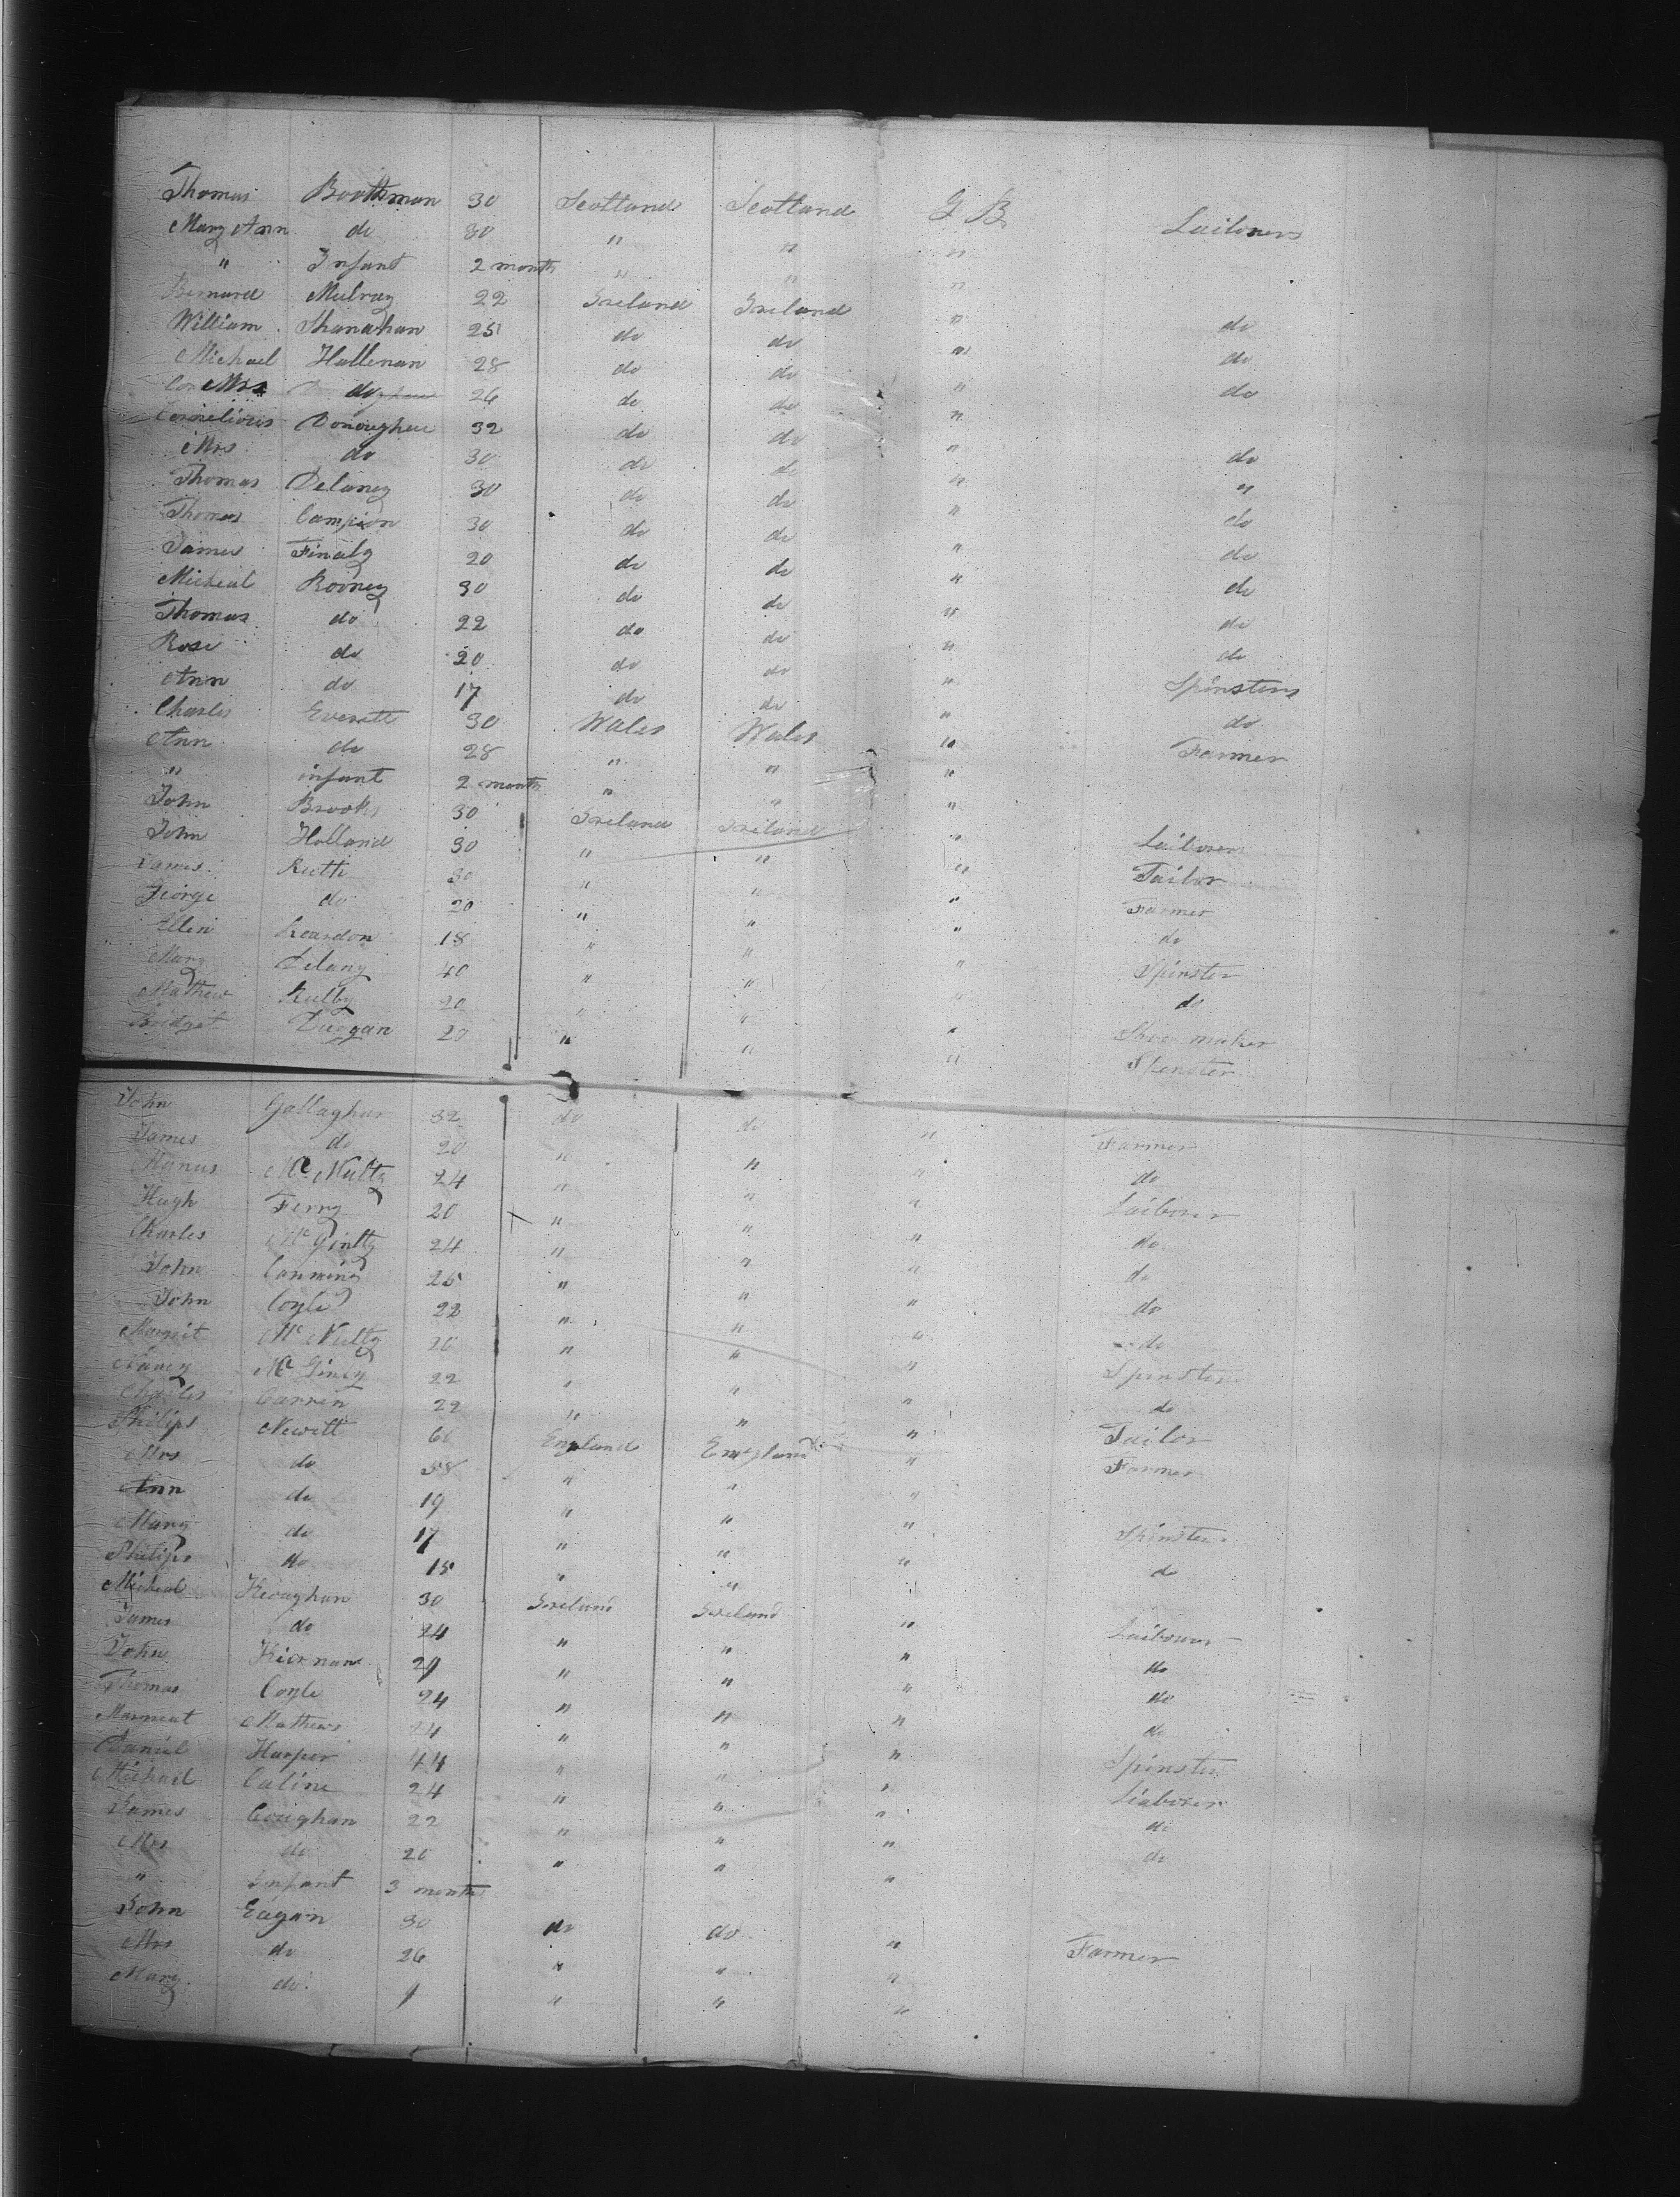 Thomas Boothman 30 Scotland Scotland G B Laibrers
Mary Ann do 30 " " "
" Infant 2 month " " "
Bernard Mulray 22 Ireland Ireland " do
William Shanahan 25 do do " do
Michael Hallenan 28 do do " do
Mrs do 26 do do "
Cornelious Donoughue 32 do do " do
Mrs do 30 do do " "
Thomas Delaney 30 do do " do
Thomas Campion 30 do do " do
James Finaly 20 do do " do
Micheal Rooney 30 do do " do
Thomas do 22 do do " do
Rose do 20 do do " Spinsters
Ann do 17 do do " do
Charles Everett 30 Wales Wales " Farmer
Ann do 28 " " "
" infant 2 month " " "
John Brooks 30 Ireland Ireland " Laibrer
John Holland 30 " " " Tailor
James Ruth 30 " " " Farmer
George do 20 " " " do
Ellen Reardon 18 " " " Spinster
Mary Delany 40 " " " do
Mathew Kulby 20 " " " Shoe maker
Bridget Duggan 20 " " " Spenster
John Gallaghar 32 do do " Farmer
James do 20 " " " do
Manus Mc Nulty 24 " " " Laibrer
Hugh Ferry 20 " " " do
Charles Mc Gintty 24 " " " do
John Canning 25 " " " do
John Coyle 22 " " " do
Margret Mc Nulty 26 " " " Spenster
Nancy Mc Giney 22 " " " do
Charles Carren 22 " " " Tailor
Philips Newitt 60 England England " Farmer
Mrs do 58 " " "
Ann do 19 " " " Spinster
Mary do 17 " " " do
Philips do 15 " " "
Micheal Keoughan 30 Ireland Ireland " Laibourer
James do 24 " " " do
John Kiernan 29 " " " do
Thomas Coyle 24 " " " do
Mathews 24 " " " Spinster
Daniel Harper 44 " " " Liabrer
Michael Caline 24 " " " do
James Coughan 22 " " " do
Mrs do 20 " " "
" Infant 3 months
John Eagan 30 do do " Farmer
Mrs do 26 " " "
Mary do 9 " " "